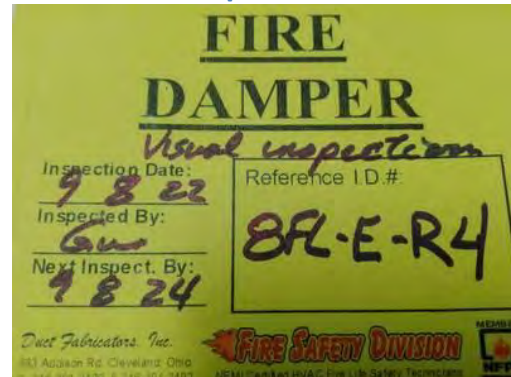 FIRE
DAMPER
Visual inspection
Inspection Date:
9 8 22
Inspected By:
Next Inspect. By:
9 8 24
Reference I.D.#:
8FL-E-R4
Duct Fabricators, Inc.
Addison Rd. Cleveland, Ohio
FIRE SAFETY DIVISION
Certified HVAC Fire Life Safety Technicians
MEMBER